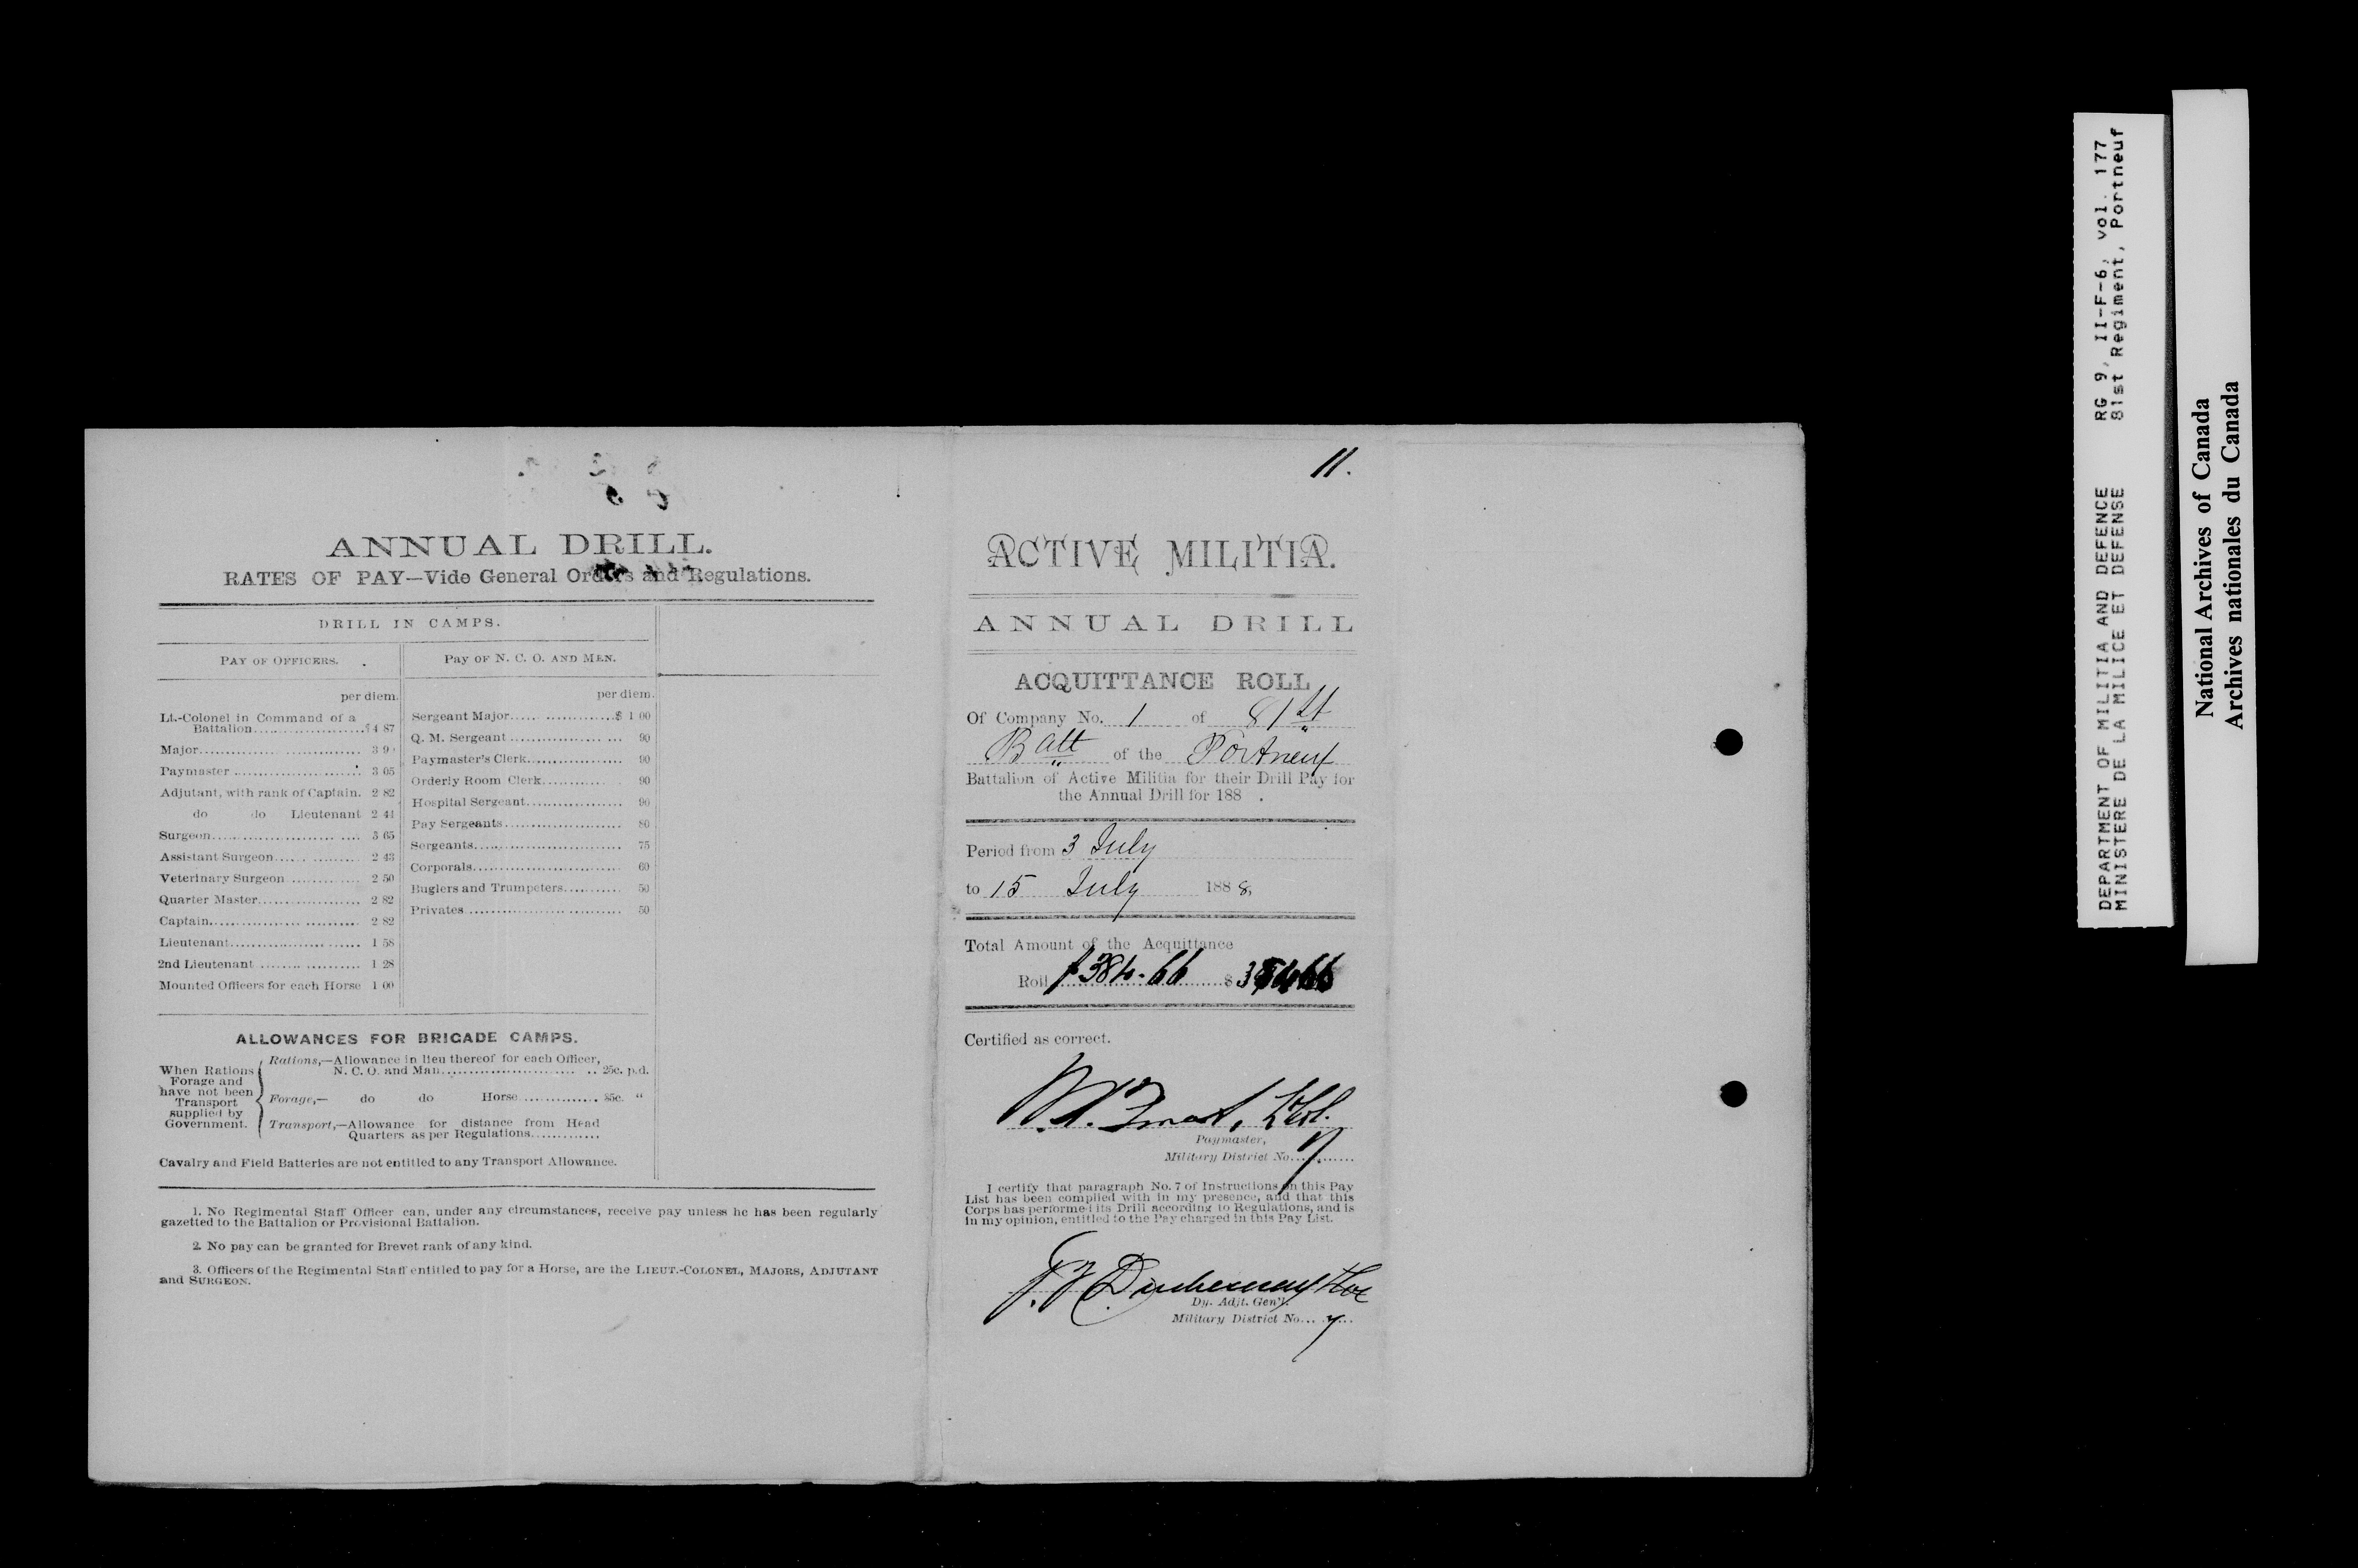 ANNUAL DRILL.
RATES OF PAY—Vide General Orders and Regulations.
DRILL IN CAMPS.
PAY OF OFFICERS.
per diem.
Lt.-Colonel in Command of a
Battalion.....................$4 87
Major............................. 3 90
Paymaster ....................... 3 05
Adjutant, with rank of Captain. 2 82
do do Lieutenant 2 44
Surgeon........................... 3 65
Assistant Surgeon................ 2 43
Veterinary Surgeon ............. 2 50
Quarter Master................... 2 82
Captain........................... 2 82
Lieutenant........................ 1 58
2nd Lieutenant .................. 1 28
Mounted Officers for each Horse 1 00
PAY OF N. C. O. AND MEN.
per diem.
Sergeant Major.....................$ 1 00
Q. M. Sergeant ..................... 90
Paymaster's Clerk.................. 90
Orderly Room Clerk............... 90
Hospital Sergeant.................. 90
Pay Sergeants...................... 80
Sergeants........................... 75
Corporals........................... 60
Buglers and Trumpeters........... 50
Privates ............................ 50
ALLOWANCES FOR BRIGADE CAMPS.
When Rations
Forage and
have not been
Transport
supplied by
Government.
Rations,—Allowance in lieu thereof for each Officer,
N. C. O. and Man............................ 25c. p.d.
Forage,— do do Horse .............. 35c. "
Transport,—Allowance for distance from Head
Quarters as per Regulations.............
Cavalry and Field Batteries are not entitled to any Transport Allowance.
1. No Regimental Staff Officer can, under any circumstances, receive pay unless he has been regularly
gazetted to the Battalion or Provisional Battalion.
2. No pay can be granted for Brevet rank of any kind.
3. Officers of the Regimental Staff entitled to pay for a Horse, are the LIEUT.-COLONEL, MAJORS, ADJUTANT
and SURGEON.
11.
ACTIVE MILITIA.
ANNUAL DRILL
ACQUITTANCE ROLL
Of Company No. 1 of 81st
Batt of the Portneuf
Battalion of Active Militia for their Drill Pay for
the Annual Drill for 188 .
Period from 3 July
to 15 July 188 8,
Total Amount of the Acquittance
Roll $384.66 $
Certified as correct.
Paymaster,
Military District No. 7
I certify that paragraph No. 7 of Instructions on this Pay
List has been complied with in my presence, and that this
Corps has performed its Drill according to Regulations, and is
in my opinion, entitled to the Pay charged in this Pay List.
Duchesnay
Dy. Adjt. Gen'l.
Military District No. 7
DEPARTMENT OF MILITIA AND DEFENCE RG 9, II-F-6, vol. 177
MINISTERE DE LA MILICE ET DEFENSE 81st Regiment, Portneuf
National Archives of Canada
Archives nationales du Canada